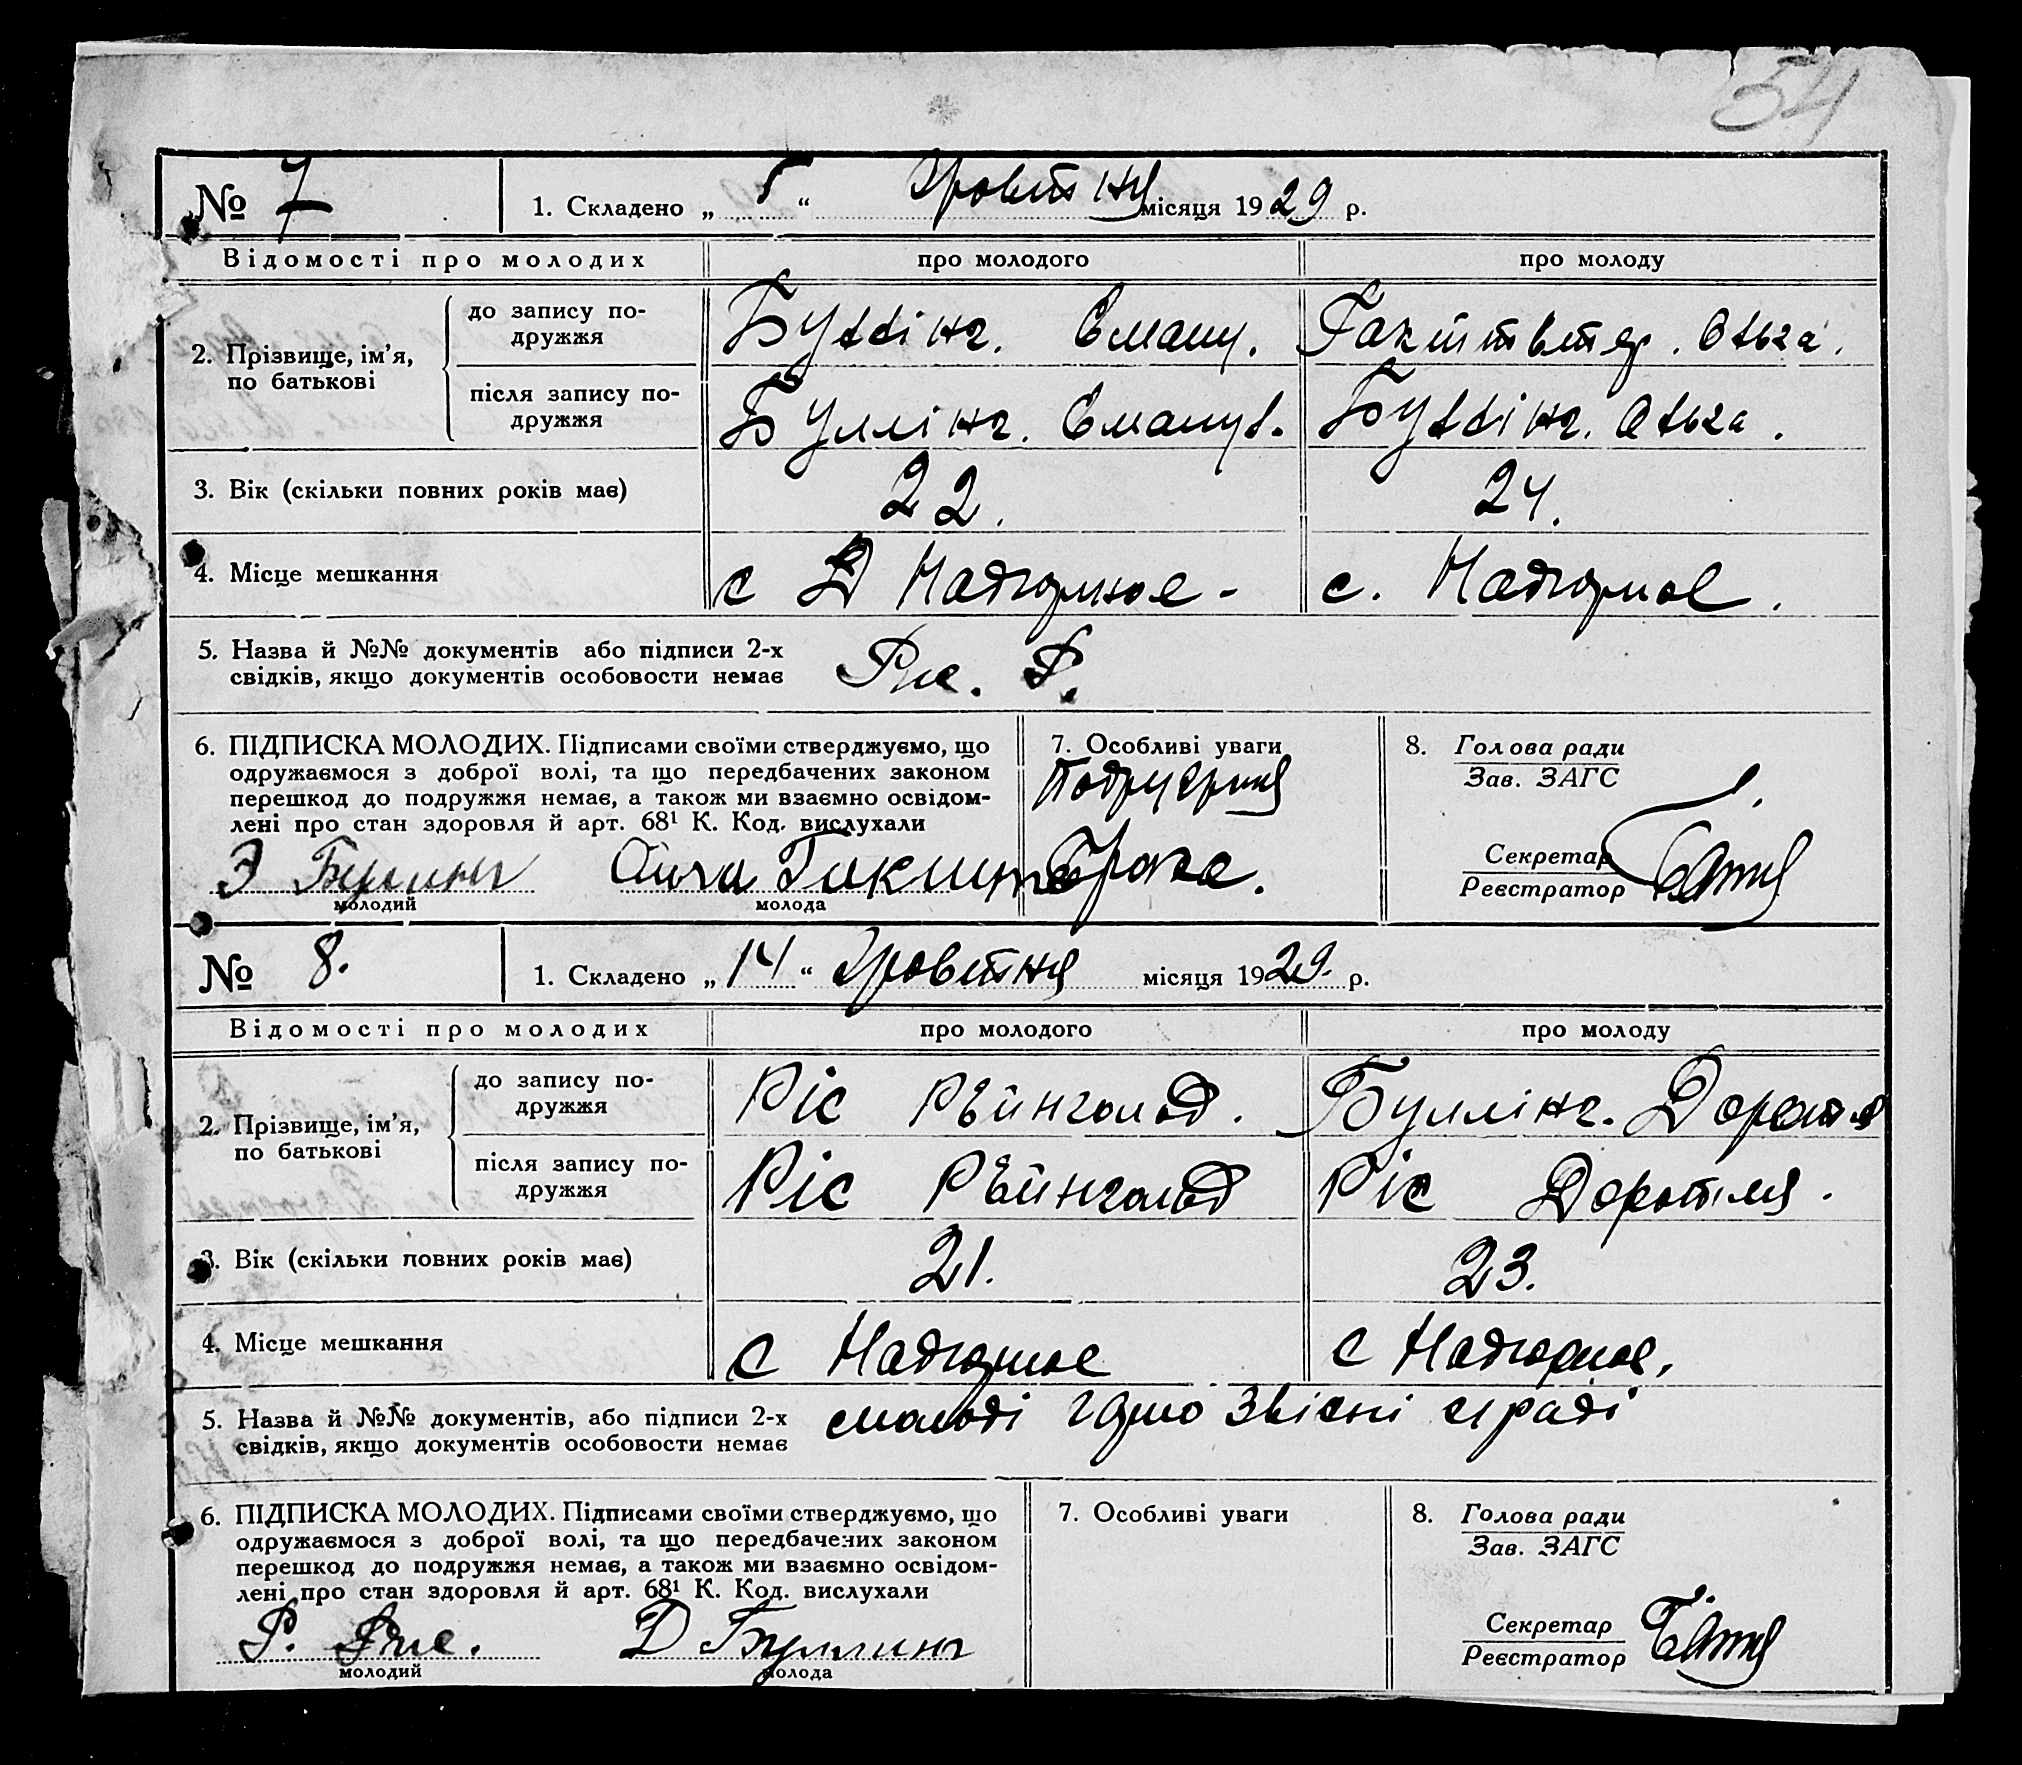 54
№ 7 1. Складено „ 5 “ Жовтня місяця 1929 р.
Відомості про молодих про молодого про молоду
2. Прізвище, ім'я, по батькові
до запису подружжя Буллінг. Еману. Ольга.
після запису подружжя Буллінг. Емануе. Буллінг. Ольга.
3. Вік (скільки повних років має) 22. 24.
4. Місце мешкання с Надгорное - с. Надгорное.
5. Назва й №№ документів або підписи 2-х
свідків, якщо документів особовости немає Рис. Р.
6. ПІДПИСКА МОЛОДИХ. Підписами своїми стверджуємо, що
одружаємося з доброї волі, та що передбачених законом
перешкод до подружжя немає, а також ми взаємно освідом-
лені про стан здоровля й арт. 68¹ К. Код. вислухали
Э Буллинг
молодий молода
7. Особливі уваги
8. Голова ради
Зав. ЗАГС
Секретар
Реєстратор
№ 8. 1. Складено „ 14 “ Жовтня місяця 1929. р.
Відомості про молодих про молодого про молоду
2. Прізвище, ім'я, по батькові
до запису подружжя Ріс Рейнгольд. Буллінг. Доротея
після запису подружжя Ріс Рейнгольд Ріс Доротея.
3. Вік (скільки повних років має) 21. 23.
4. Місце мешкання с Надгорное с Надгорное.
5. Назва й №№ документів, або підписи 2-х
свідків, якщо документів особовости немає молоді звісні раді
6. ПІДПИСКА МОЛОДИХ. Підписами своїми стверджуємо, що
одружаємося з доброї волі, та що передбачених законом
перешкод до подружжя немає, а також ми взаємно освідом-
лені про стан здоровля й арт. 68¹ К. Код. вислухали
Р. Рис. Д Буллинг
молодий молода
7. Особливі уваги
8. Голова ради
Зав. ЗАГС
Секретар
Реєстратор